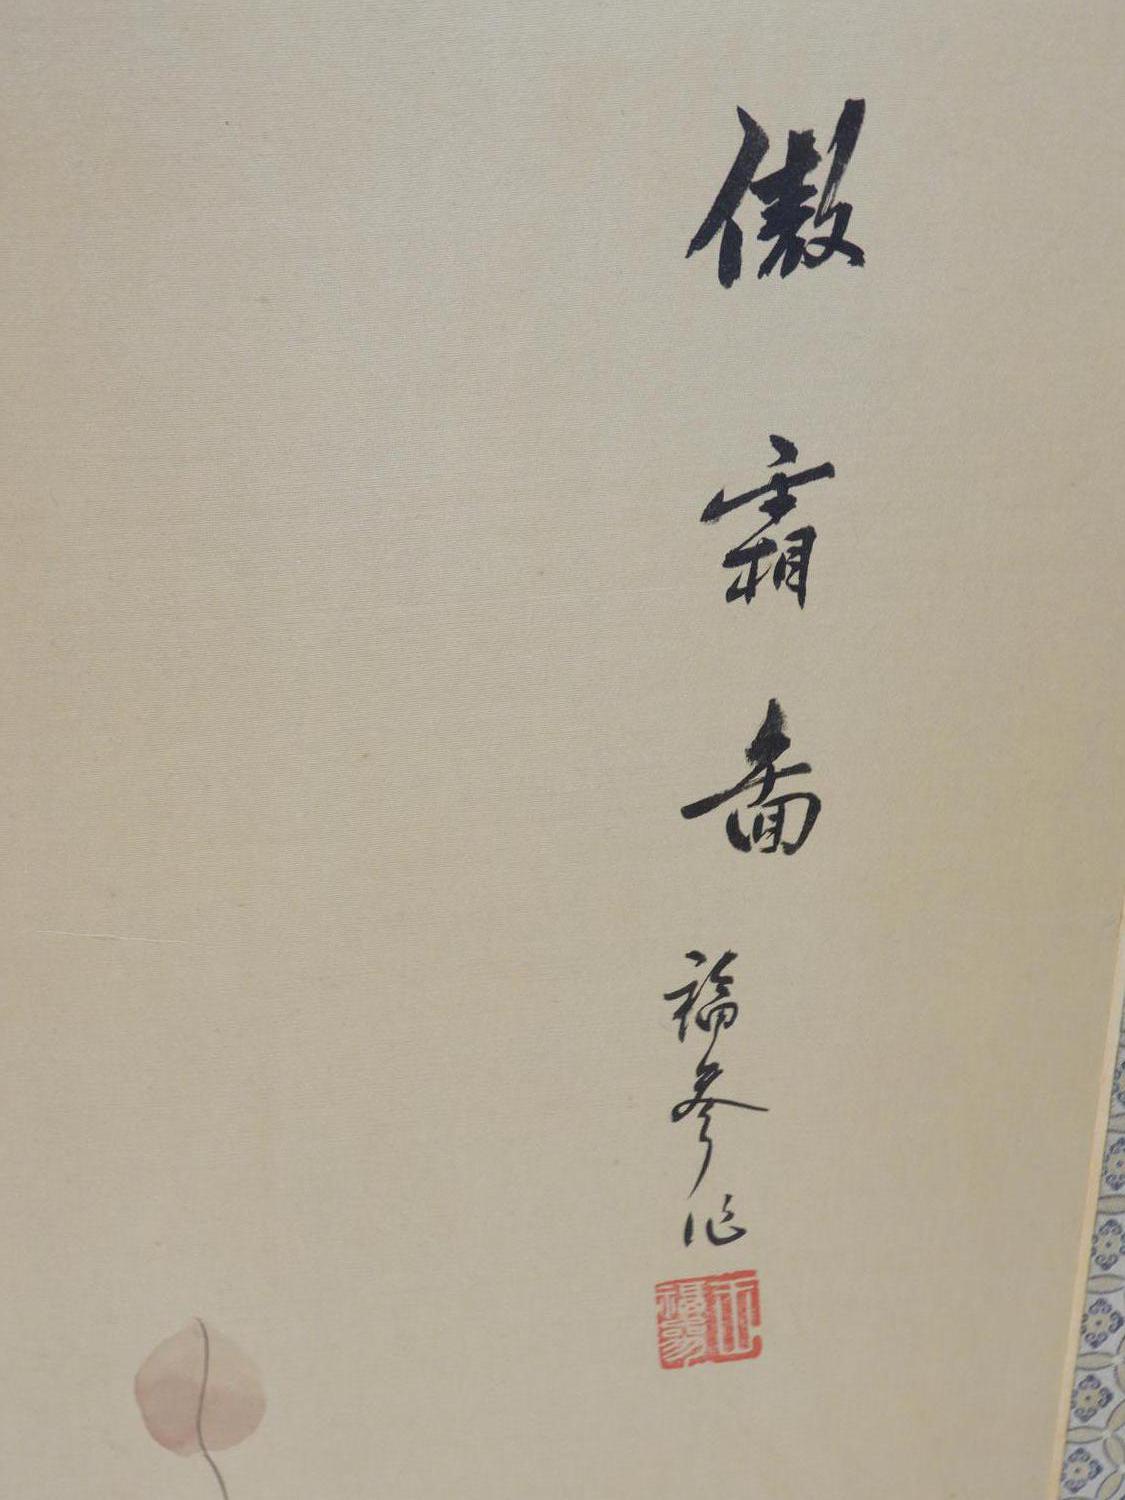 傲霜圖
福參作